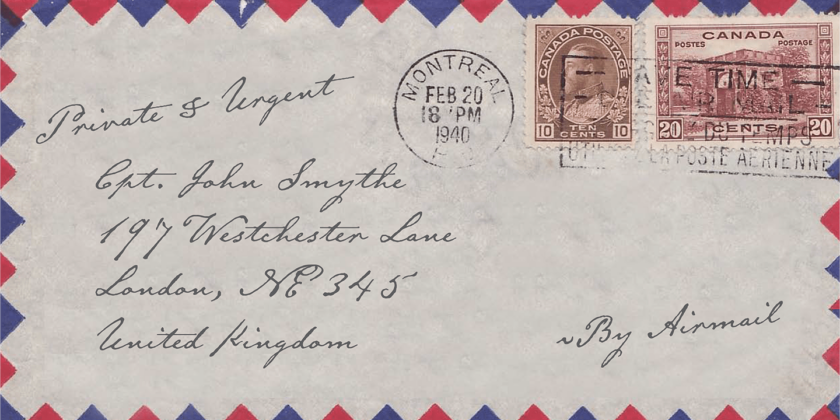 MONTREAL
FEB 20
18 PM
1940
CANADA POSTAGE
10 TEN CENTS 10
CANADA
POSTES POSTAGE
20 CENTS 20
TIME
DU TEMPS
LA POSTE AERIENNE
Private & Urgent
Cpt. John Smythe
197 Westchester Lane
London, NE 345
United Kingdom
~By Airmail